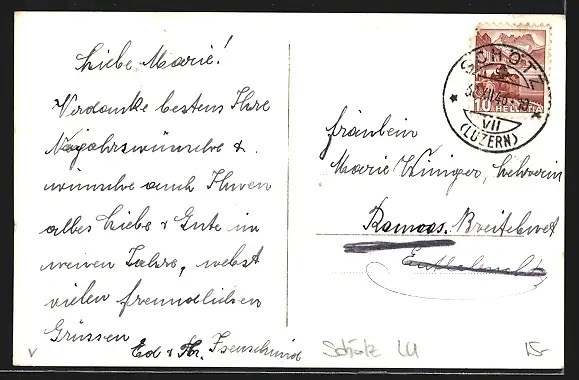 Liebe Marie!
Verdanke bestens Ihre
Neujahrswünsche &
wünsche auch Ihnen
alles Liebe & Gute im
neuen Jahre, nebst
vielen freundlichen
Grüssen
Ed & Fr. Isenschmid
SCHÖTZ
VII
(LUZERN)
10 HELVETIA
Fräulein
Marie Winiger, Lehrerin
Romoos. Breitebnet
Entlebuch
Schötz LU
15-
v